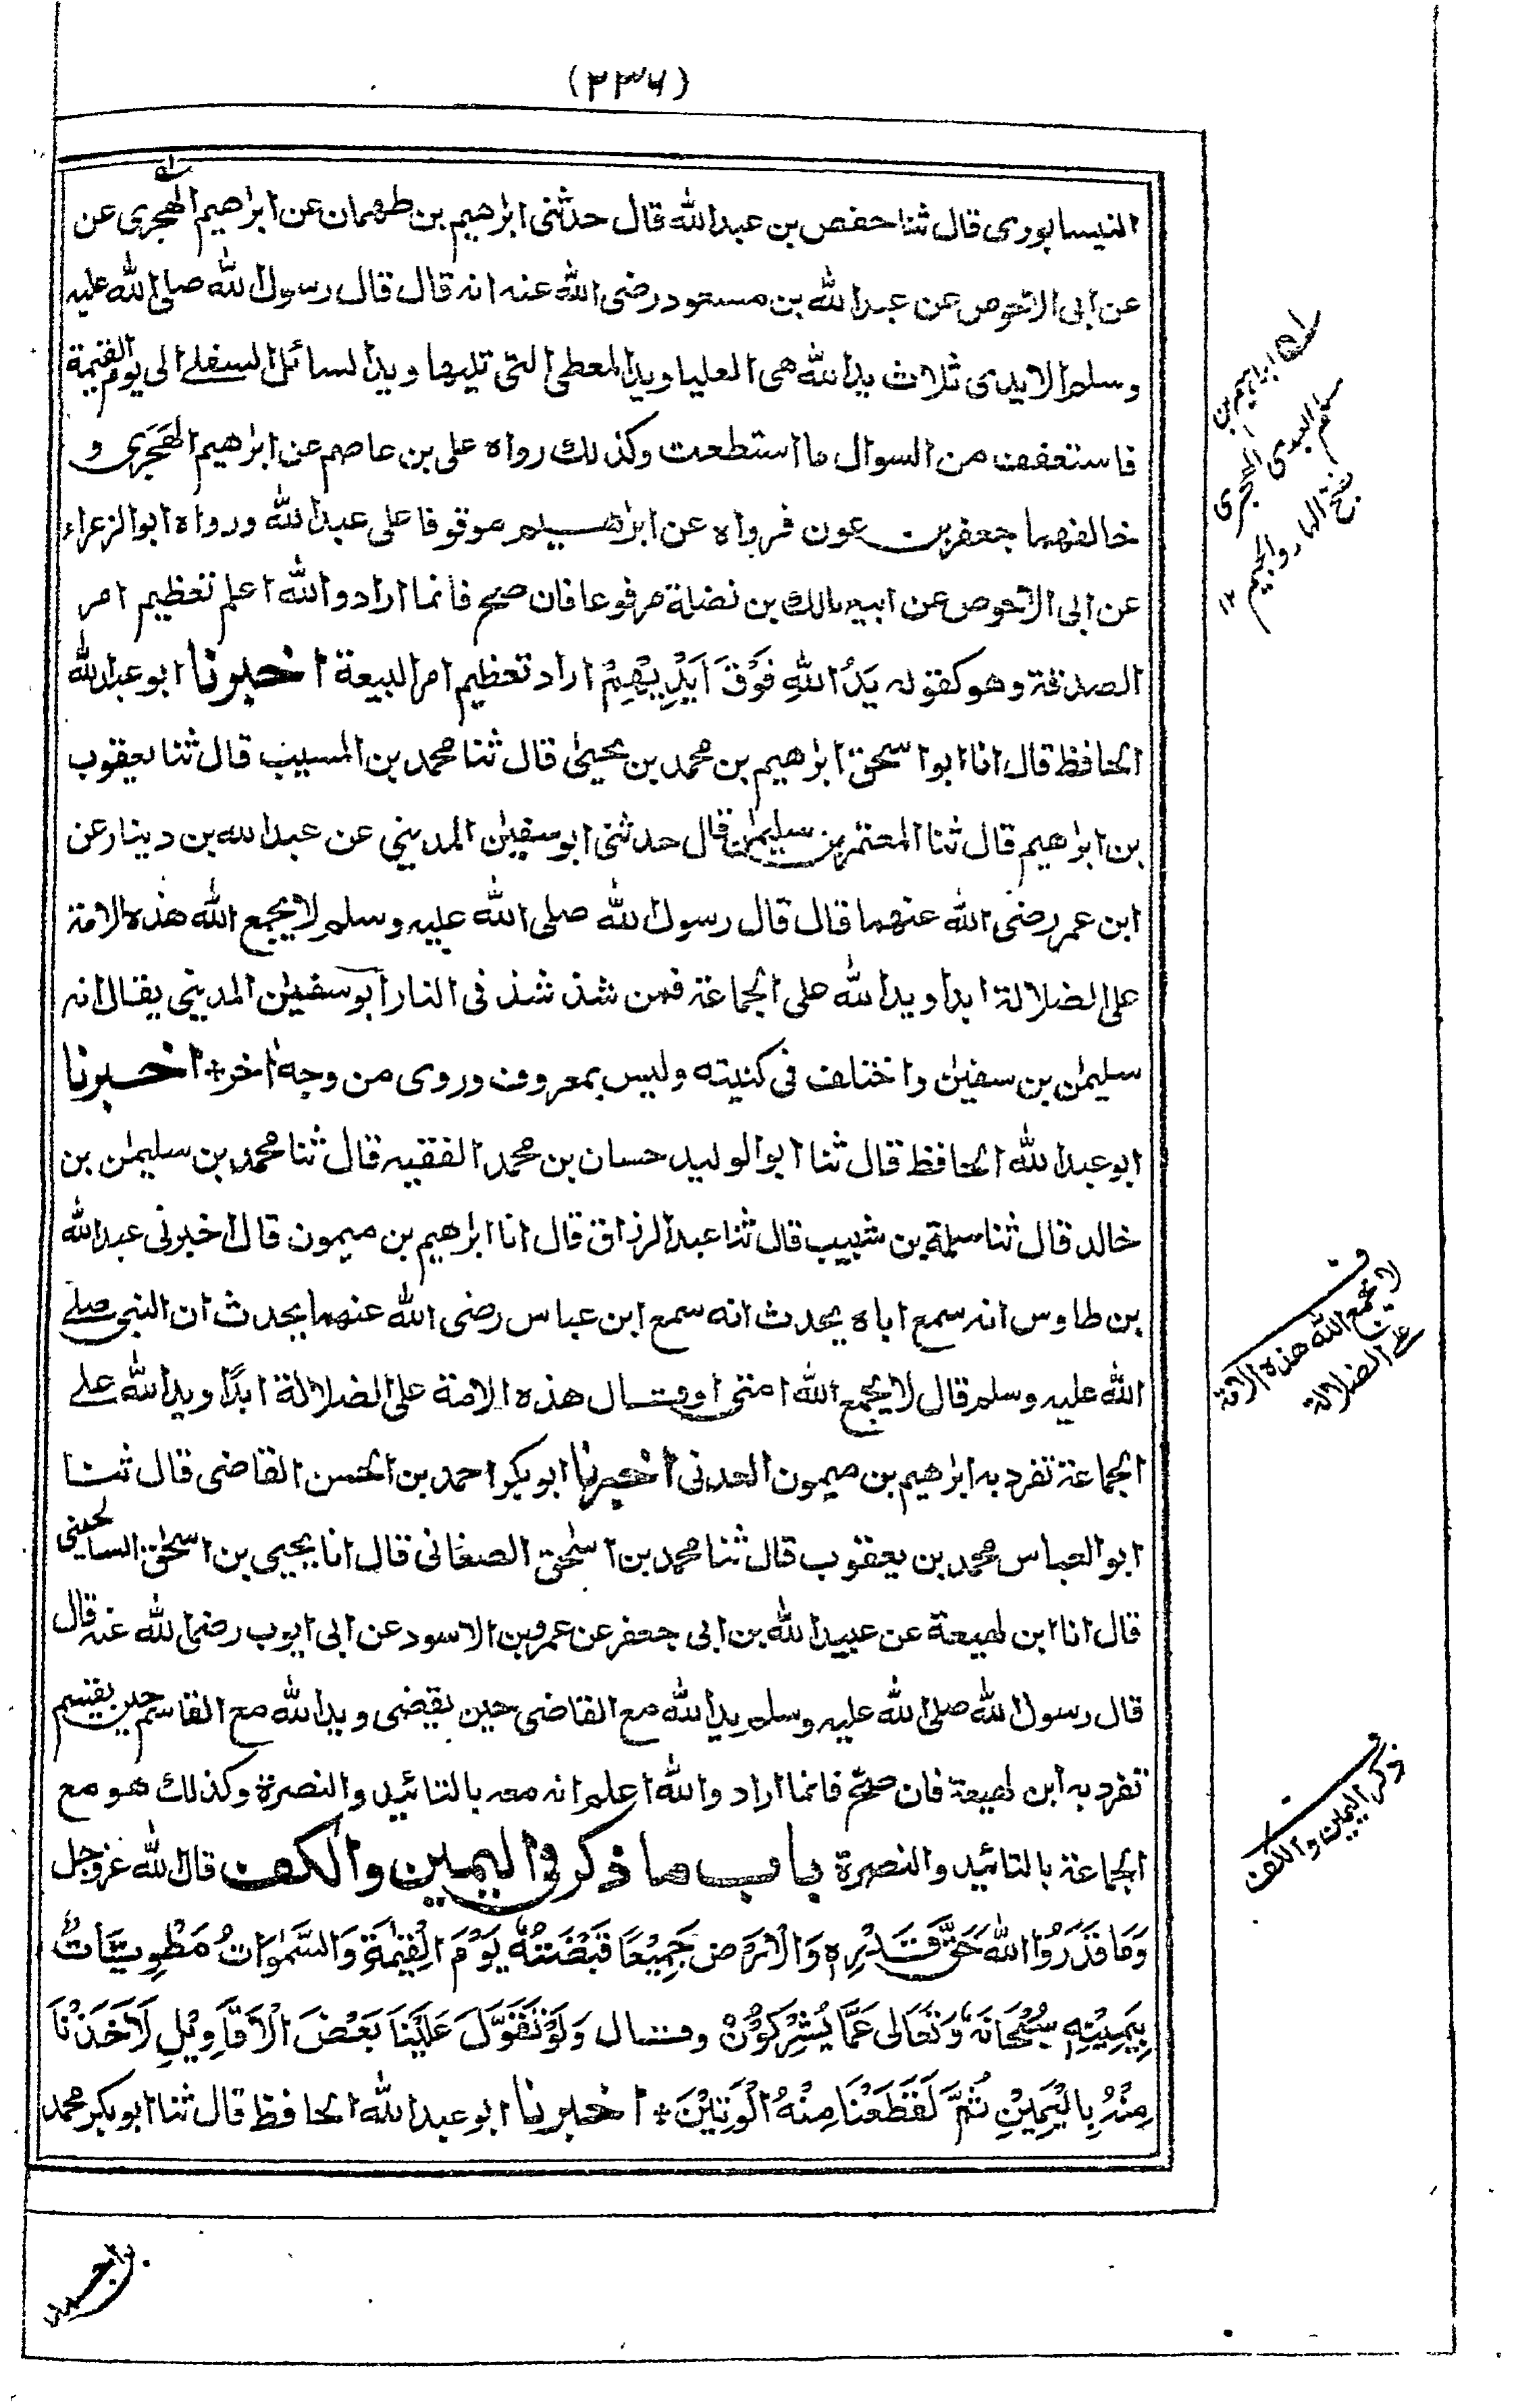 (۲۳۶)
النيسابوری قال ثنا حفص بن عبدالله قال حدثنی ابرٰهيم بن طهمان عن ابراهيم الهجری عن
عن ابی الاحوص عن عبدالله بن مسعود رضی الله عنه انه قال قال رسول الله صلی الله عليه
وسلم الايدی ثلاث يدالله هی العليا ويد المعطی التی تليها ويد السائل السفلے الی يوم القيٰمة
فاستعفف من السوال ما استطعت وكذلك رواه علی بن عاصم عن ابرٰهيم الهَجَری و
خالفهما جعفر بن عون فرواه عن ابرٰهيم موقوفا علی عبدالله ورواه ابوالزعراء
عن ابی الاحوص عن ابيه مالك بن نضلة مرفوعا فان صح فانما اراد والله اعلم تعظيم امر
الصدقة وهو كقوله يَدُ اللهِ فَوْقَ اَيْدِيْهِمْ اراد تعظيم امر البيعة اخبرنا ابو عبدالله
الحافظ قال انا ابو اسحٰق ابرٰهيم بن محمد بن يحيیٰ قال ثنا محمد بن المسيب قال ثنا يعقوب
بن ابرٰهيم قال ثنا المعتمر بن سليمٰن قال حدثنی ابو سفيٰن المدينی عن عبدالله بن دينار عن
ابن عمر رضی الله عنهما قال قال رسول الله صلی الله عليه وسلم لا يجمع الله هذه الامة
علی الضلالة ابدا ويدالله علی الجماعة فمن شذ شذ فی النار ابو سفيٰن المدينی يقال انه
سليمٰن بن سفيٰن واختلف فی كنيته وليس بمعروف وروی من وجه اٰخر + اخبرنا
ابو عبدالله الحافظ قال ثنا ابوالوليد حسان بن محمد الفقيه قال ثنا محمد بن سليمٰن بن
خالد قال ثنا سلمة بن شبيب قال ثنا عبدالرزاق قال انا ابرٰهيم بن ميمون قال اخبرنی عبدالله
بن طاوس انه سمع اباه يحدث انه سمع ابن عباس رضی الله عنهما يحدث ان النبی صلے
الله عليه وسلم قال لا يجمع الله امتی او قال هذه الامة علی الضلالة ابدًا ويدالله علے
الجماعة تفرد به ابرٰهيم بن ميمون العدنی اخبرنا ابوبكر احمد بن الحسن القاضی قال ثنا
ابو العباس محمد بن يعقوب قال ثنا محمد بن اسٰحق الصغانی قال انا يحيی بن اسحٰق السالحينی
قال انا ابن لهيعة عن عبيدالله بن ابی جعفر عن عمرو بن الاسود عن ابی ايوب رضی الله عنه قال
قال رسول الله صلی الله عليه وسلم يدالله مع القاضی حين يقضی ويدالله مع القاسم حين يقسم
تفرد به ابن لهيعة فان صح فانما اراد والله اعلم انه معه بالتائيد والنصرة وكذلك هو مع
الجماعة بالتائيد والنصرة باب ما ذكر فی اليمين والكف قال الله عزوجل
وَمَا قَدَرُوا اللهَ حَقَّ قَدْرِهٖ وَالْاَرْضُ جَمِيْعًا قَبْضَتُهٗ يَوْمَ الْقِيٰمَةِ وَالسَّمٰوَاتُ مَطْوِيّٰاتٌۢ
بِيَمِيْنِهٖ سُبْحَانَهٗ وَتَعَالٰى عَمَّا يُشْرِكُوْنَ وقال وَلَوْ تَقَوَّلَ عَلَيْنَا بَعْضَ الْاَقَاوِيْلِ لَاَخَذْنَا
مِنْهُ بِالْيَمِيْنِ ثُمَّ لَقَطَعْنَا مِنْهُ الْوَتِيْنَ + اخبرنا ابو عبدالله الحافظ قال ثنا ابوبكر محمد
ابراہیم بن
مسلم العبدی الہجری
بفتح الہاء والجیم ١٢
لا یجمع الله هذه الامة
علے الضلالة
ذکر الیمین والکف